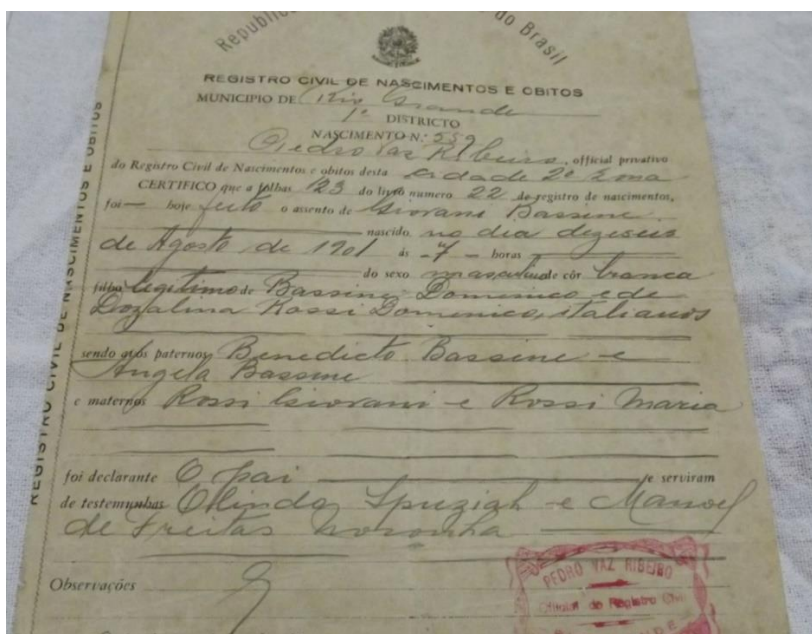 Republica do Brasil
REGISTRO CIVIL DE NASCIMENTOS E OBITOS
MUNICIPIO DE Rio Grande
1º DISTRICTO
NASCIMENTO N.º 559
Pedro Vaz Ribeiro, official privativo
do Registro Civil de Nascimentos e obitos desta cidade 2ª Zona
CERTIFICO que a folhas 123 do livro numero 22 do registro de nascimentos,
foi — hoje feito o assento de Giovani Bassine
nascido no dia dezeseis
de Agosto de 1901 ás 7 horas
do sexo masculino de côr branca
filho legitimo de Bassine Domenico e de
Rossi Domenico, italianos
sendo avós paternos Benedicto Bassine e
Angela Bassine
e maternos Rossi Giovani e Rossi Maria
foi declarante O pai e serviram
de testemunhas Olindo e Manoel
de Freitas Noronha
Observações
PEDRO VAZ RIBEIRO
Official do Registro Civil
REGISTRO CIVIL DE NASCIMENTOS E OBITOS